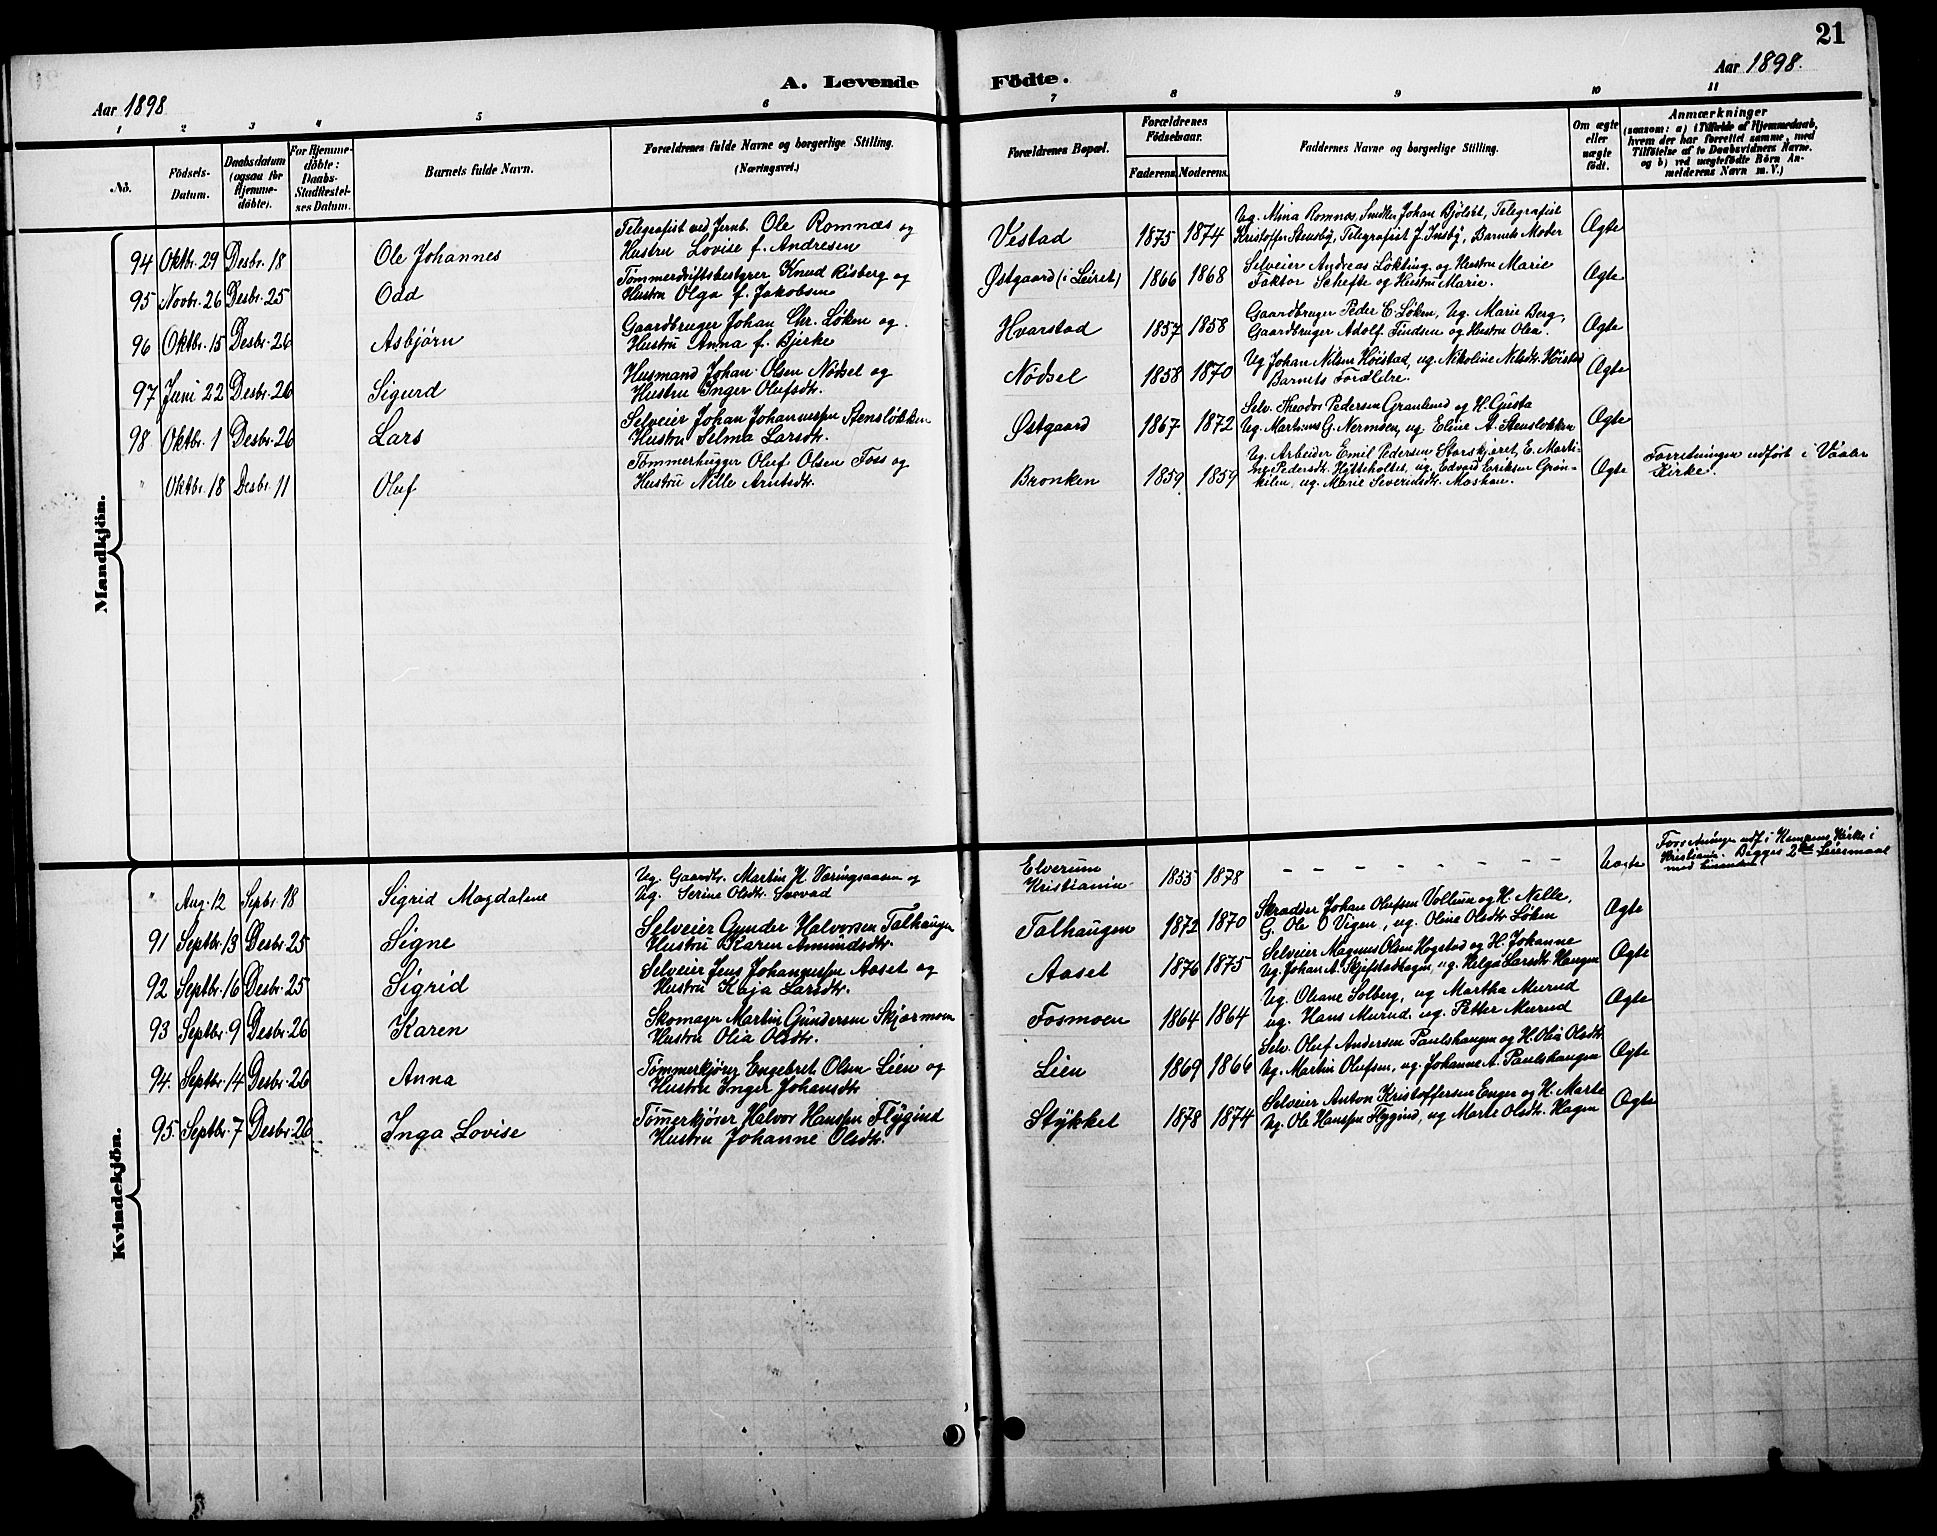 21
A. Levende Födte.
Aar 1898
Aar 1898.
1 2 3 4 5 6 7 8 9 10 11
No.
Födsels-Datum.
Daabsdatum (ogsaa for Hjemmedöbte).
For Hjemmedöbte: Daabs-Stadfæstelses Datum.
Barnets fulde Navn.
Forældrenes fulde Navne og borgerlige Stilling.
(Næringsvei.)
Forældrenes Bopæl.
Forældrenes Födselsaar.
Faderens. Moderens.
Faddernes Navne og borgerlige Stilling.
Om ægte eller uægte födt.
Anmærkninger
(saasom: a) i Tilfælde af Hjemmedaab, hvem der har forrettet samme, med Tilföielse af to Daabsvidners Navne, og b) ved uægtefödte Börn Anmelderens Navn m. V.)
Mandkjön.
94 Oktbr. 29 Desbr. 18 Ole Johannes Telegrafist ved Jernb. Ole Romnæs og Vestad 1875 1874 Ug. Mina Romnæs, Smedler Johan Bjölset, Telegrafist Ægte
Hustru Lovise f. Andresen Kristoffer Stensby, Telegrafist J. Insby, Barnets Moder
95 Novbr. 26 Desbr. 25 Odd Tømmerdriftsbestyrer Knud Risberg og Østgaard (i Leiret) 1866 1868 Selveier Andreas Løkting og Hustru Marie Ægte
Hustru Olga f. Jakobsen Faktor Schefte og Hustru Marie.
96 Oktbr. 15 Desbr. 26 Asbjørn Gaardbruger Johan Chr. Løken og Hvarstad 1857 1858 Gaardbruger Peder C. Løken, Ug. Marie Berg, Ægte
Hustru Anna f. Bjerke Gaardbruger Adolf Findsen og Hustru Olea.
97 Juni 22 Desbr. 26 Sigurd Husmand Johan Olsen Nödset og Nödsel 1858 1870 Ug Johan Nilsen Höistad, ug. Nikoline Nilsdtr. Höistad Ægte
Hustru Inger Olufsdtr. Barnets Forældre.
98 Oktbr. 1 Desbr. 26 Lars Selveier Johan Johannessen Stensløkken Østgaard 1867 1872 Selv. Theodor Pedersen Granlund og H. Gusta Ægte
Hustru Selma Larsdtr. Ug. Martinus G. Nerondsen, ug Eline A. Stensløkken
" Oktbr. 18 Desbr. 11 Oluf Tömmerhugger Oluf Olsen Foss og Bronken 1859 1859 Ug. Arbeider Emil Pedersen Storskjæret, E. Marti- Ægte Forretningen udført i Vaaler
Hustru Nille Arntsdtr. ne Pedersdtr. Hytteholtet, ug. Edvard Eriksen Grøn- Kirke.
kilen, ug. Marie Severinsdtr. Moshau.
Kvindekjön.
" Aug. 12 Septbr. 18 Sigrid Magdalene Ug. Gaardbr. Martin H. Væringsaasen og Elverum 1855 1878 – – – – – – – Uægte Forretningen udf. i Kampens Kirke i
Ug. Serine Olsdtr. Kristiania Kristiania. Begges 2det Leiermaal
91 Septbr. 13 Desbr. 25 Signe Selveier Gunder Halvorsen Talhaugen Talhaugen 1872 1870 Skrædder Johan Olufsen Vollum og H. Nille, Ægte
Hustru Karen Amundsdtr. G. Ole O Vigen, ug. Oline Olsdtr. Löken
92 Septbr. 16 Desbr. 25 Sigrid Selveier Jens Johannessen Aaset og Aaset 1876 1875 Selveier Magnus Olsen Hogstad og H. Johanne Ægte
Hustru Kaja Larsdtr. Ug. Johan A. Skjefstadhagen, ug. Helga Larsdtr. Haugen
93 Septbr. 9 Desbr. 26 Karen Skomager Martin Gundersen Skjærmoen Fosmoen 1864 1864 Ug. Oliane Solberg, ug Martha Murud Ægte
Hustru Olia Olsdtr. ug. Hans Murud, ug. Petter Murud
94 Septbr. 14 Desbr. 26 Anna Tømmerkjører Engebret Olsen Lien og Lien 1869 1866 Selv. Oluf Andersen Paulshaugen og H. Olia Olsdtr. Ægte
Hustru Inger Johansdtr. Ug. Martin Olufsen, ug. Johanne A. Paulshaugen
95 Septbr. 7 Desbr. 26 Inga Lovise Tømmerkjører Halvor Hanssen Flygind Stykket 1878 1874 Selveier Anton Kristoffersen Enger og H. Marte Ægte
Hustru Johanne Olsdtr. Ug. Ole Hanssen Flygind, ug Marte Olsdtr. Hagen